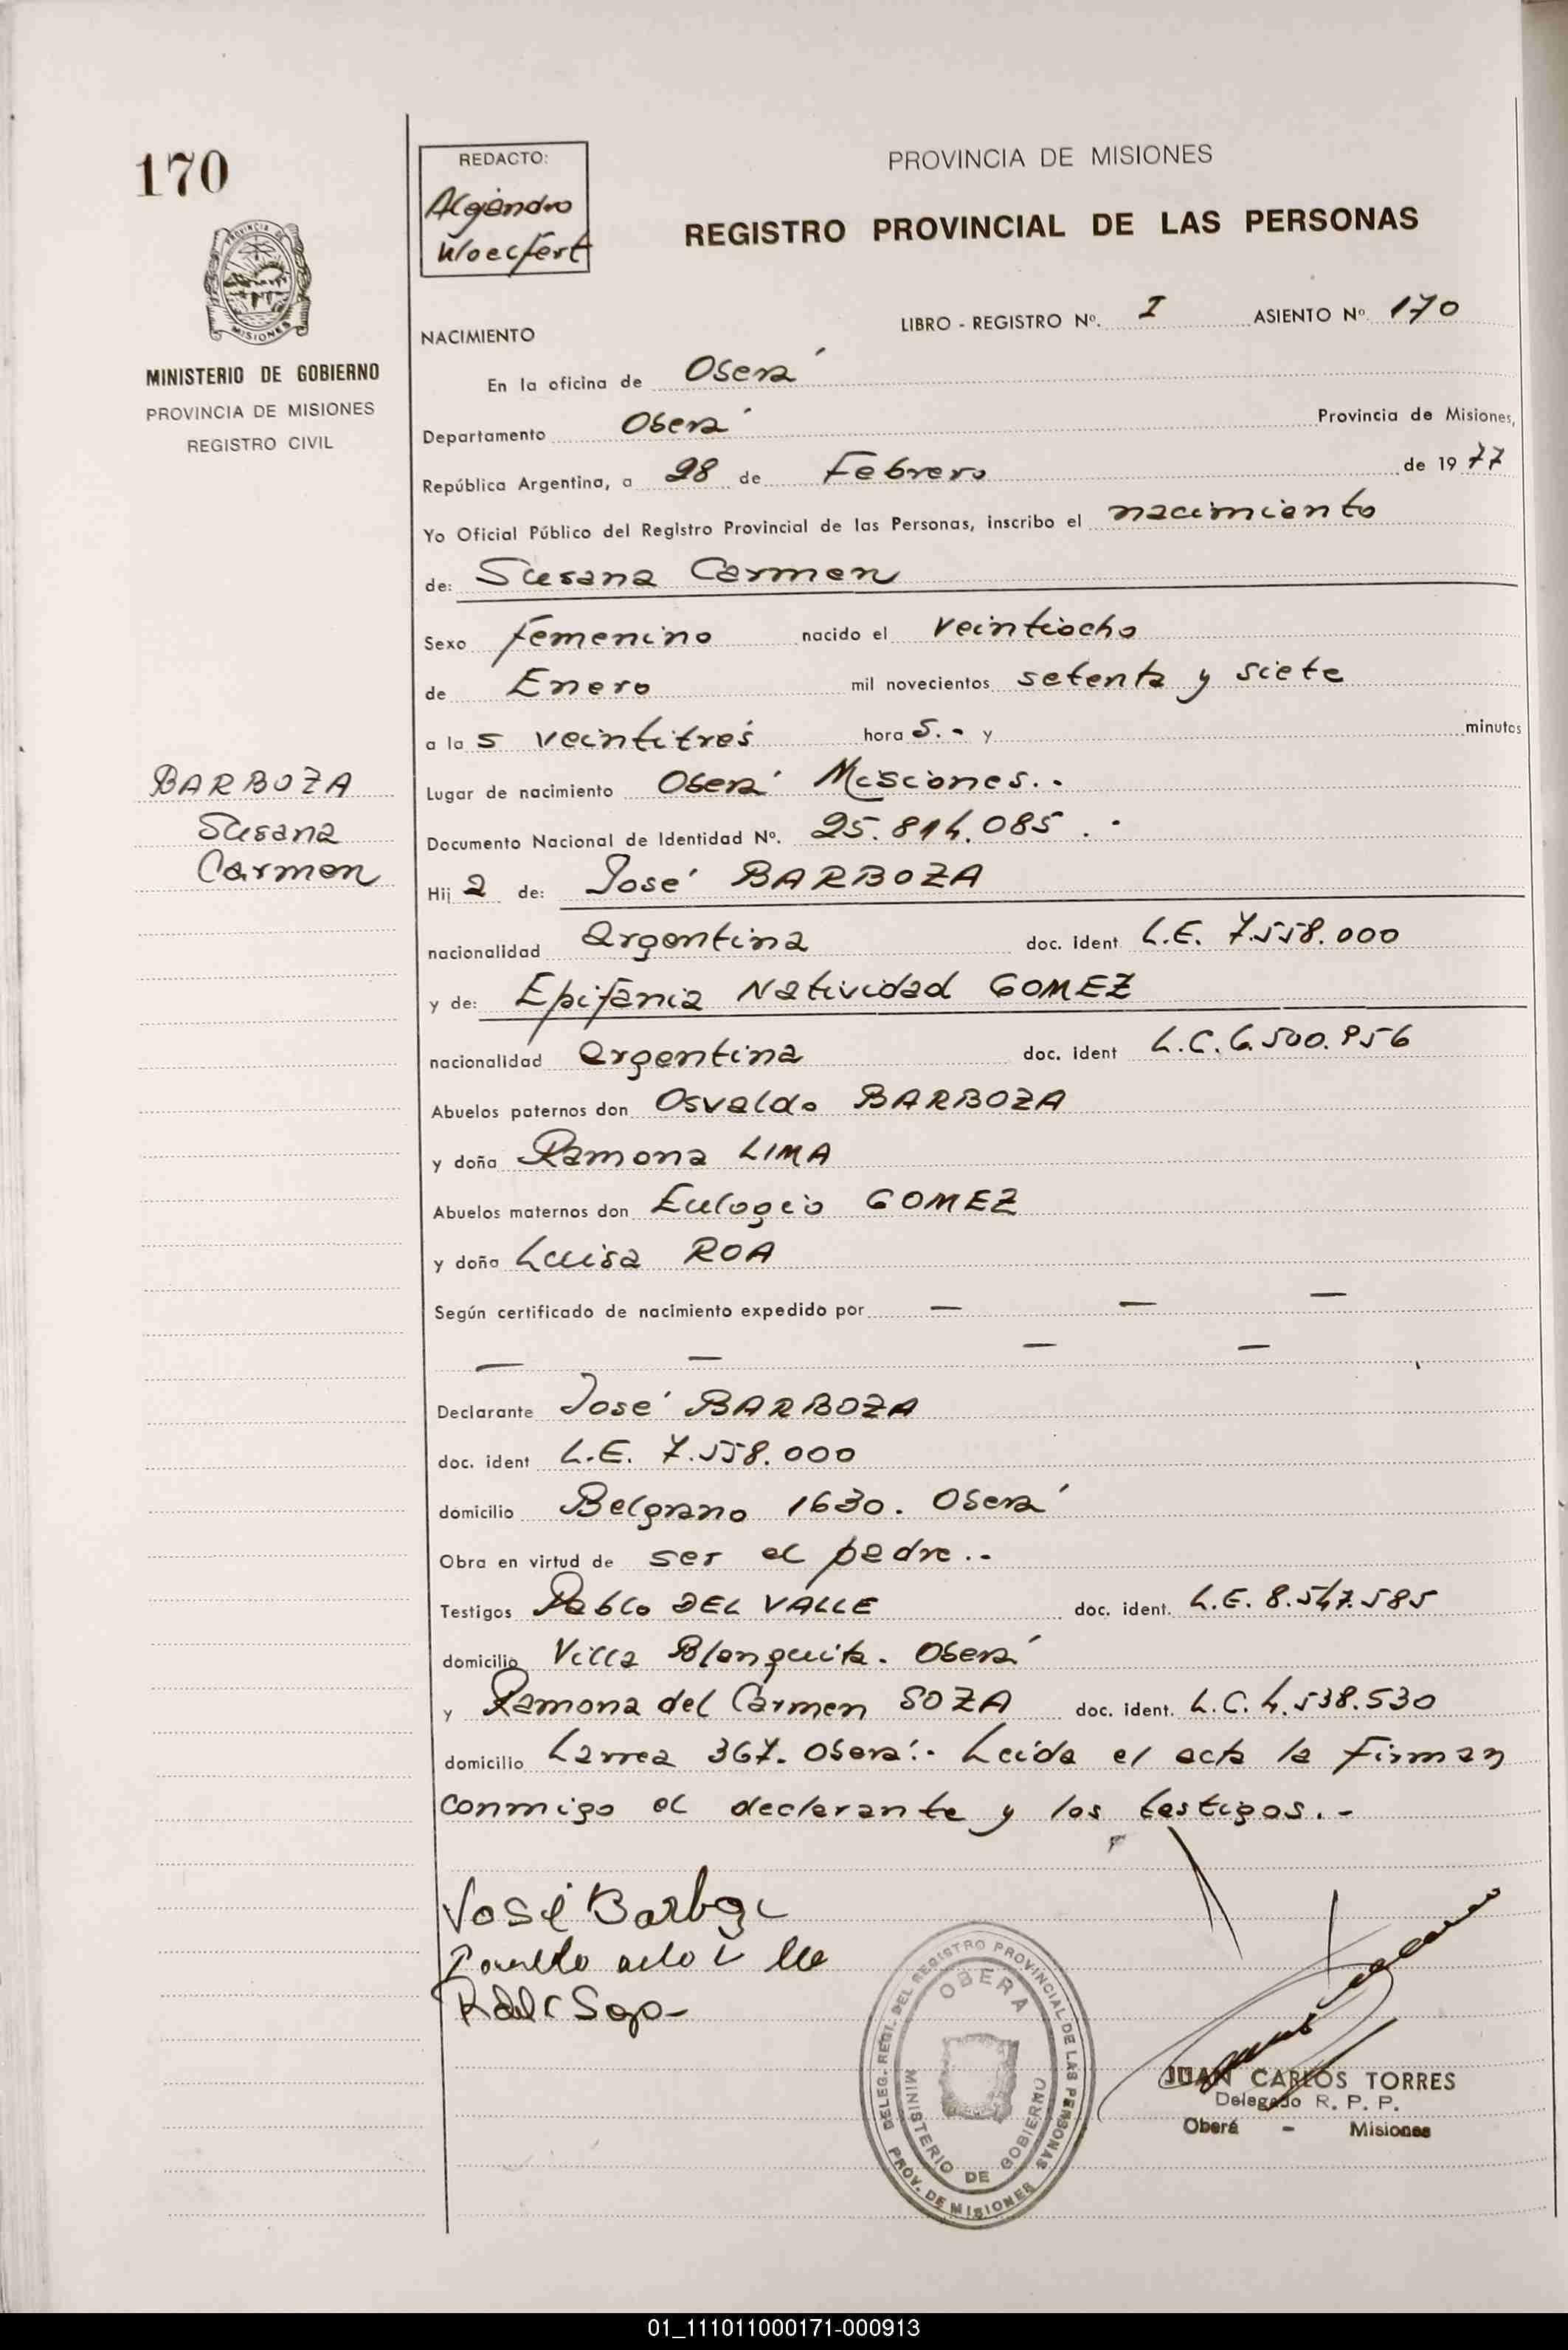 170
REDACTO:
Alejandro
Woelfert
PROVINCIA DE MISIONES
REGISTRO PROVINCIAL DE LAS PERSONAS
PROVINCIA DE
MISIONES
MINISTERIO DE GOBIERNO
PROVINCIA DE MISIONES
REGISTRO CIVIL
NACIMIENTO LIBRO - REGISTRO Nº. I ASIENTO Nº 170
En la oficina de Oberá
Departamento Oberá Provincia de Misiones,
República Argentina, a 28 de Febrero de 1977
Yo Oficial Público del Registro Provincial de las Personas, inscribo el nacimiento
de: Susana Carmen
Sexo femenino nacido el veintiocho
de Enero mil novecientos setenta y siete
a la s veintitrés hora s.- y minutos
BARBOZA
Susana
Carmen
Lugar de nacimiento Oberá Misiones.-
Documento Nacional de Identidad Nº. 25.814.085.-
Hij a de: José BARBOZA
nacionalidad argentina doc. ident L.E. 7.558.000
y de: Epifania Natividad GOMEZ
nacionalidad argentina doc. ident L.C. 6.500.956
Abuelos paternos don Osvaldo BARBOZA
y doña Ramona LIMA
Abuelos maternos don Eulogio GOMEZ
y doña Luisa ROA
Según certificado de nacimiento expedido por — — —
— — — —
Declarante José BARBOZA
doc. ident L.E. 7.558.000
domicilio Belgrano 1630. Oberá
Obra en virtud de ser el padre.-
Testigos Pablo DEL VALLE doc. ident. L.E. 8.547.585
domicilio Villa Blanquita. Oberá
y Ramona del Carmen SOZA doc. ident. L.C. 4.538.530
domicilio Larrea 367. Oberá.- Leída el acta la firman
conmigo el declarante y los testigos.-
José Barboza
R del C Soza-
DELEG. REGI. DEL REGISTRO PROVINCIAL DE LAS PERSONAS
PROV. DE MISIONES
OBERA
MINISTERIO DE GOBIERNO
JUAN CARLOS TORRES
Delegado R. P. P.
Oberá - Misiones
01_111011000171-000913